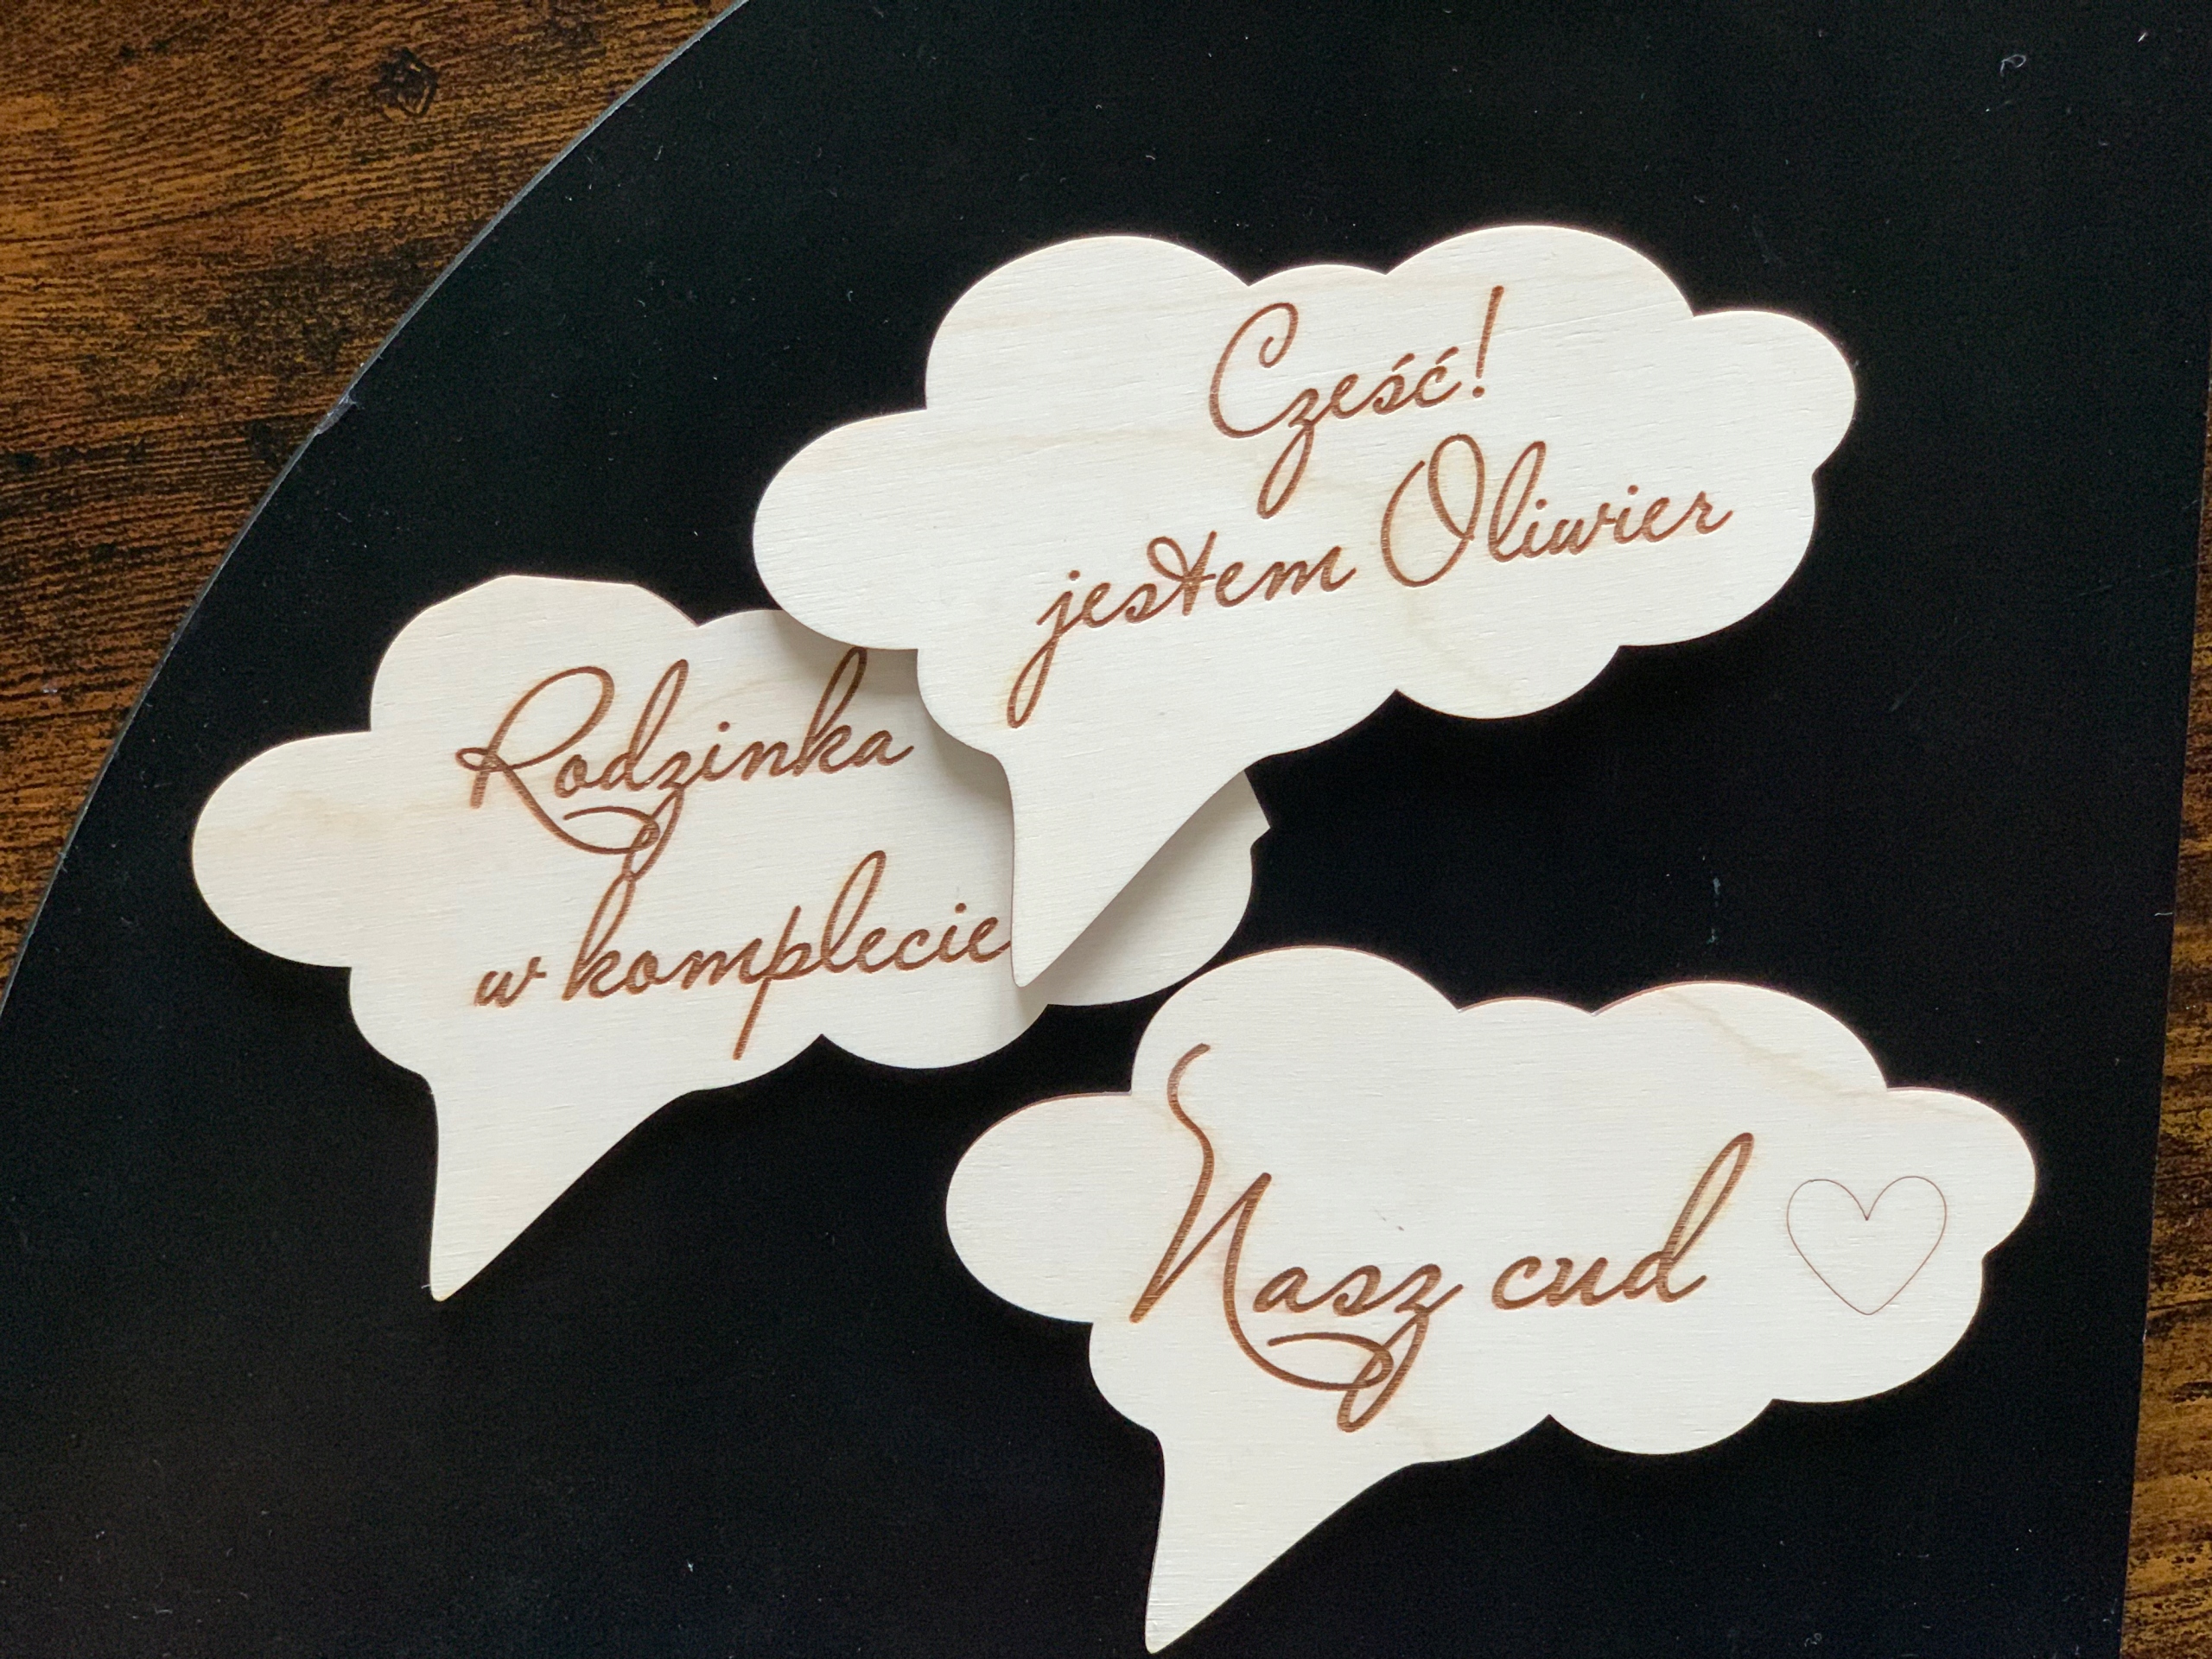 Cześć!
jestem Oliwier
Rodzinka
w komplecie
Nasz cud